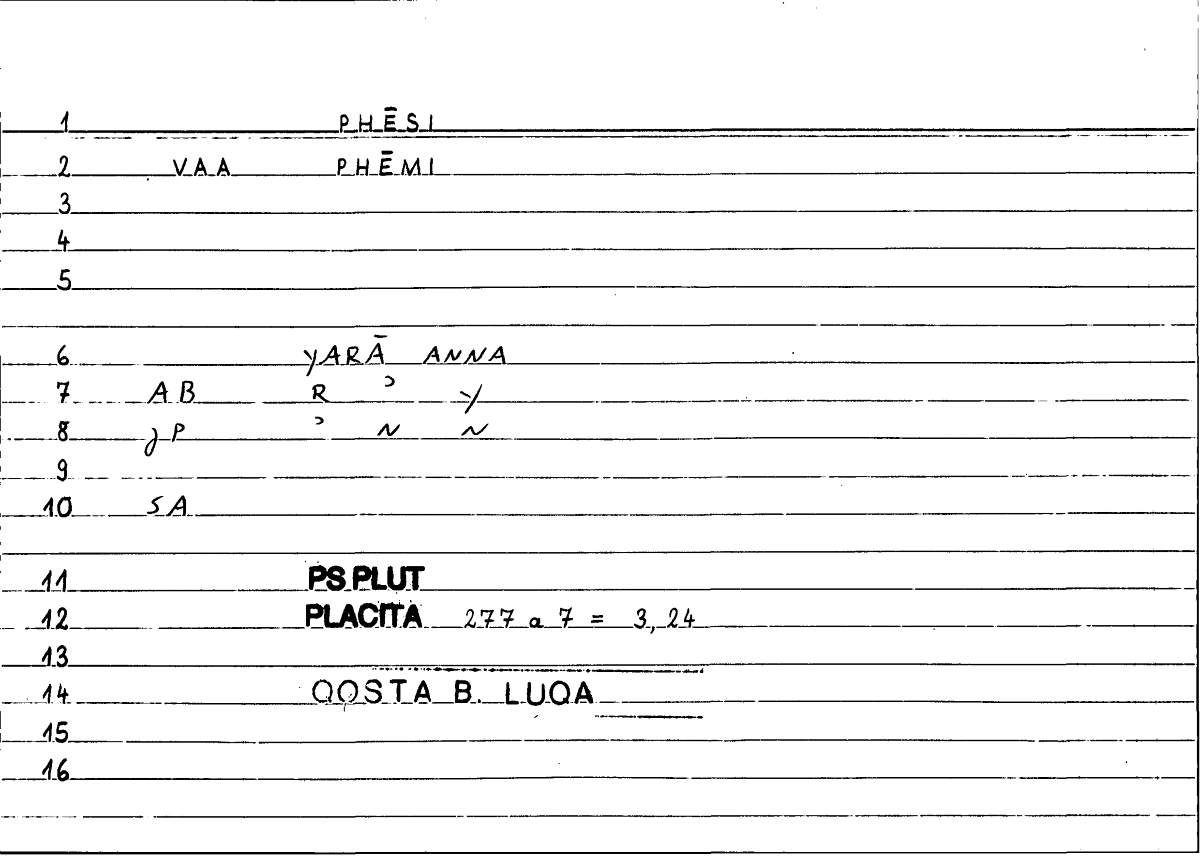 1 PHĒSI
2 VAA PHĒMI
3
4
5
6 YARĀ ANNA
7 AB R ʾ Y
8 JP ʾ N N
9
10 SA
11 PS PLUT
12 PLACITA 277 a 7 = 3, 24
13
14 QOSTA B. LUQA
15
16